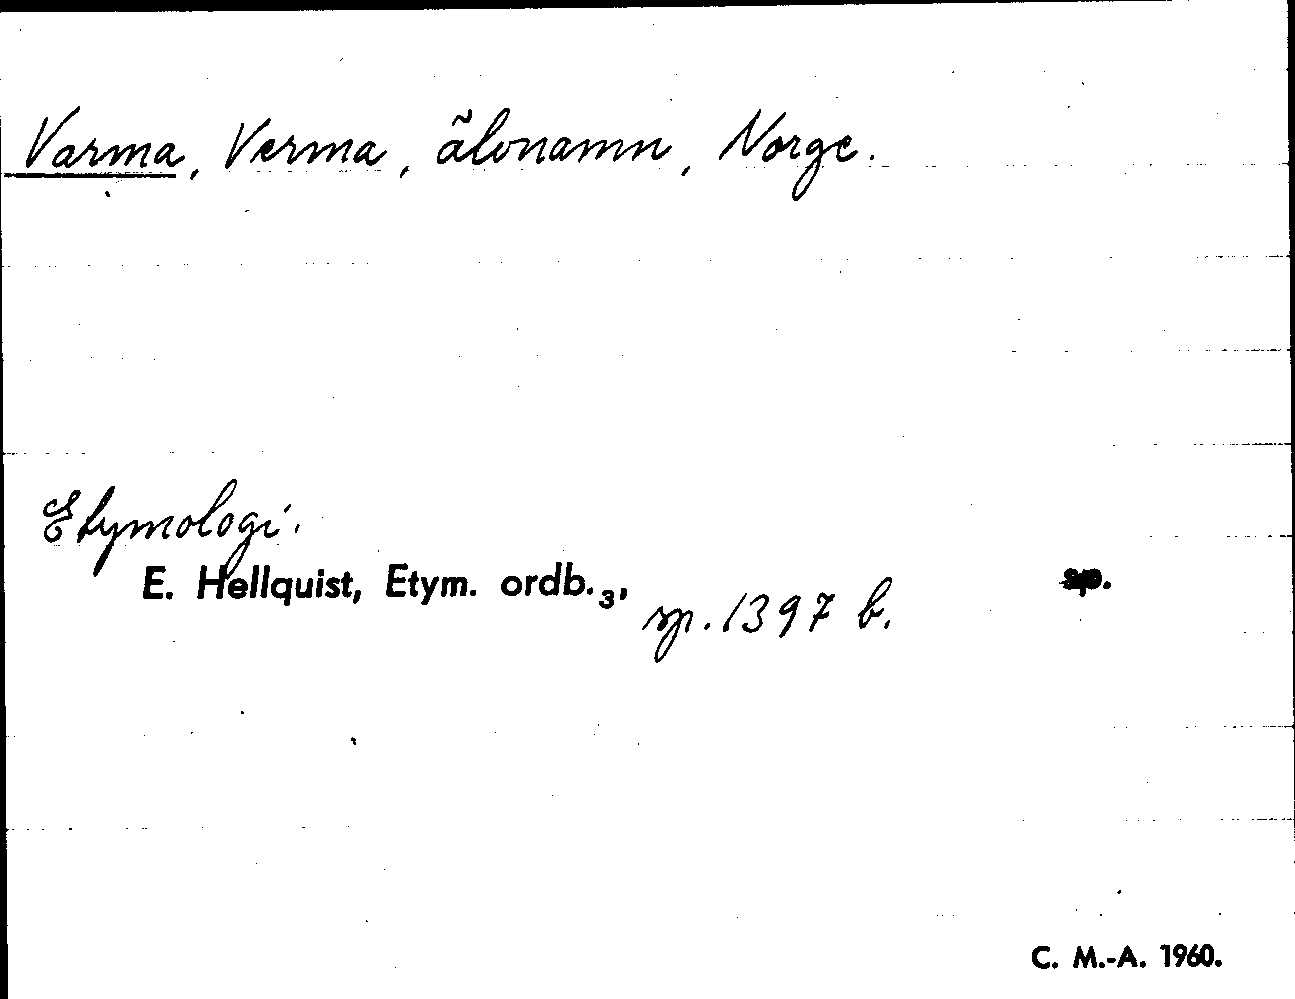 Varma, Verma, älvnamn, Norge.
Etymologi.
E. Hellquist, Etym. ordb.3, sp. 1397 b. sp.
C. M.-A. 1960.